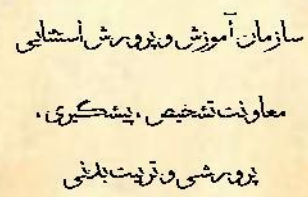 سازمان آموزش و پرورش استثنایی
معاونت تشخیص ، پیشگیری ،
پرورشی و تربیت بدنی